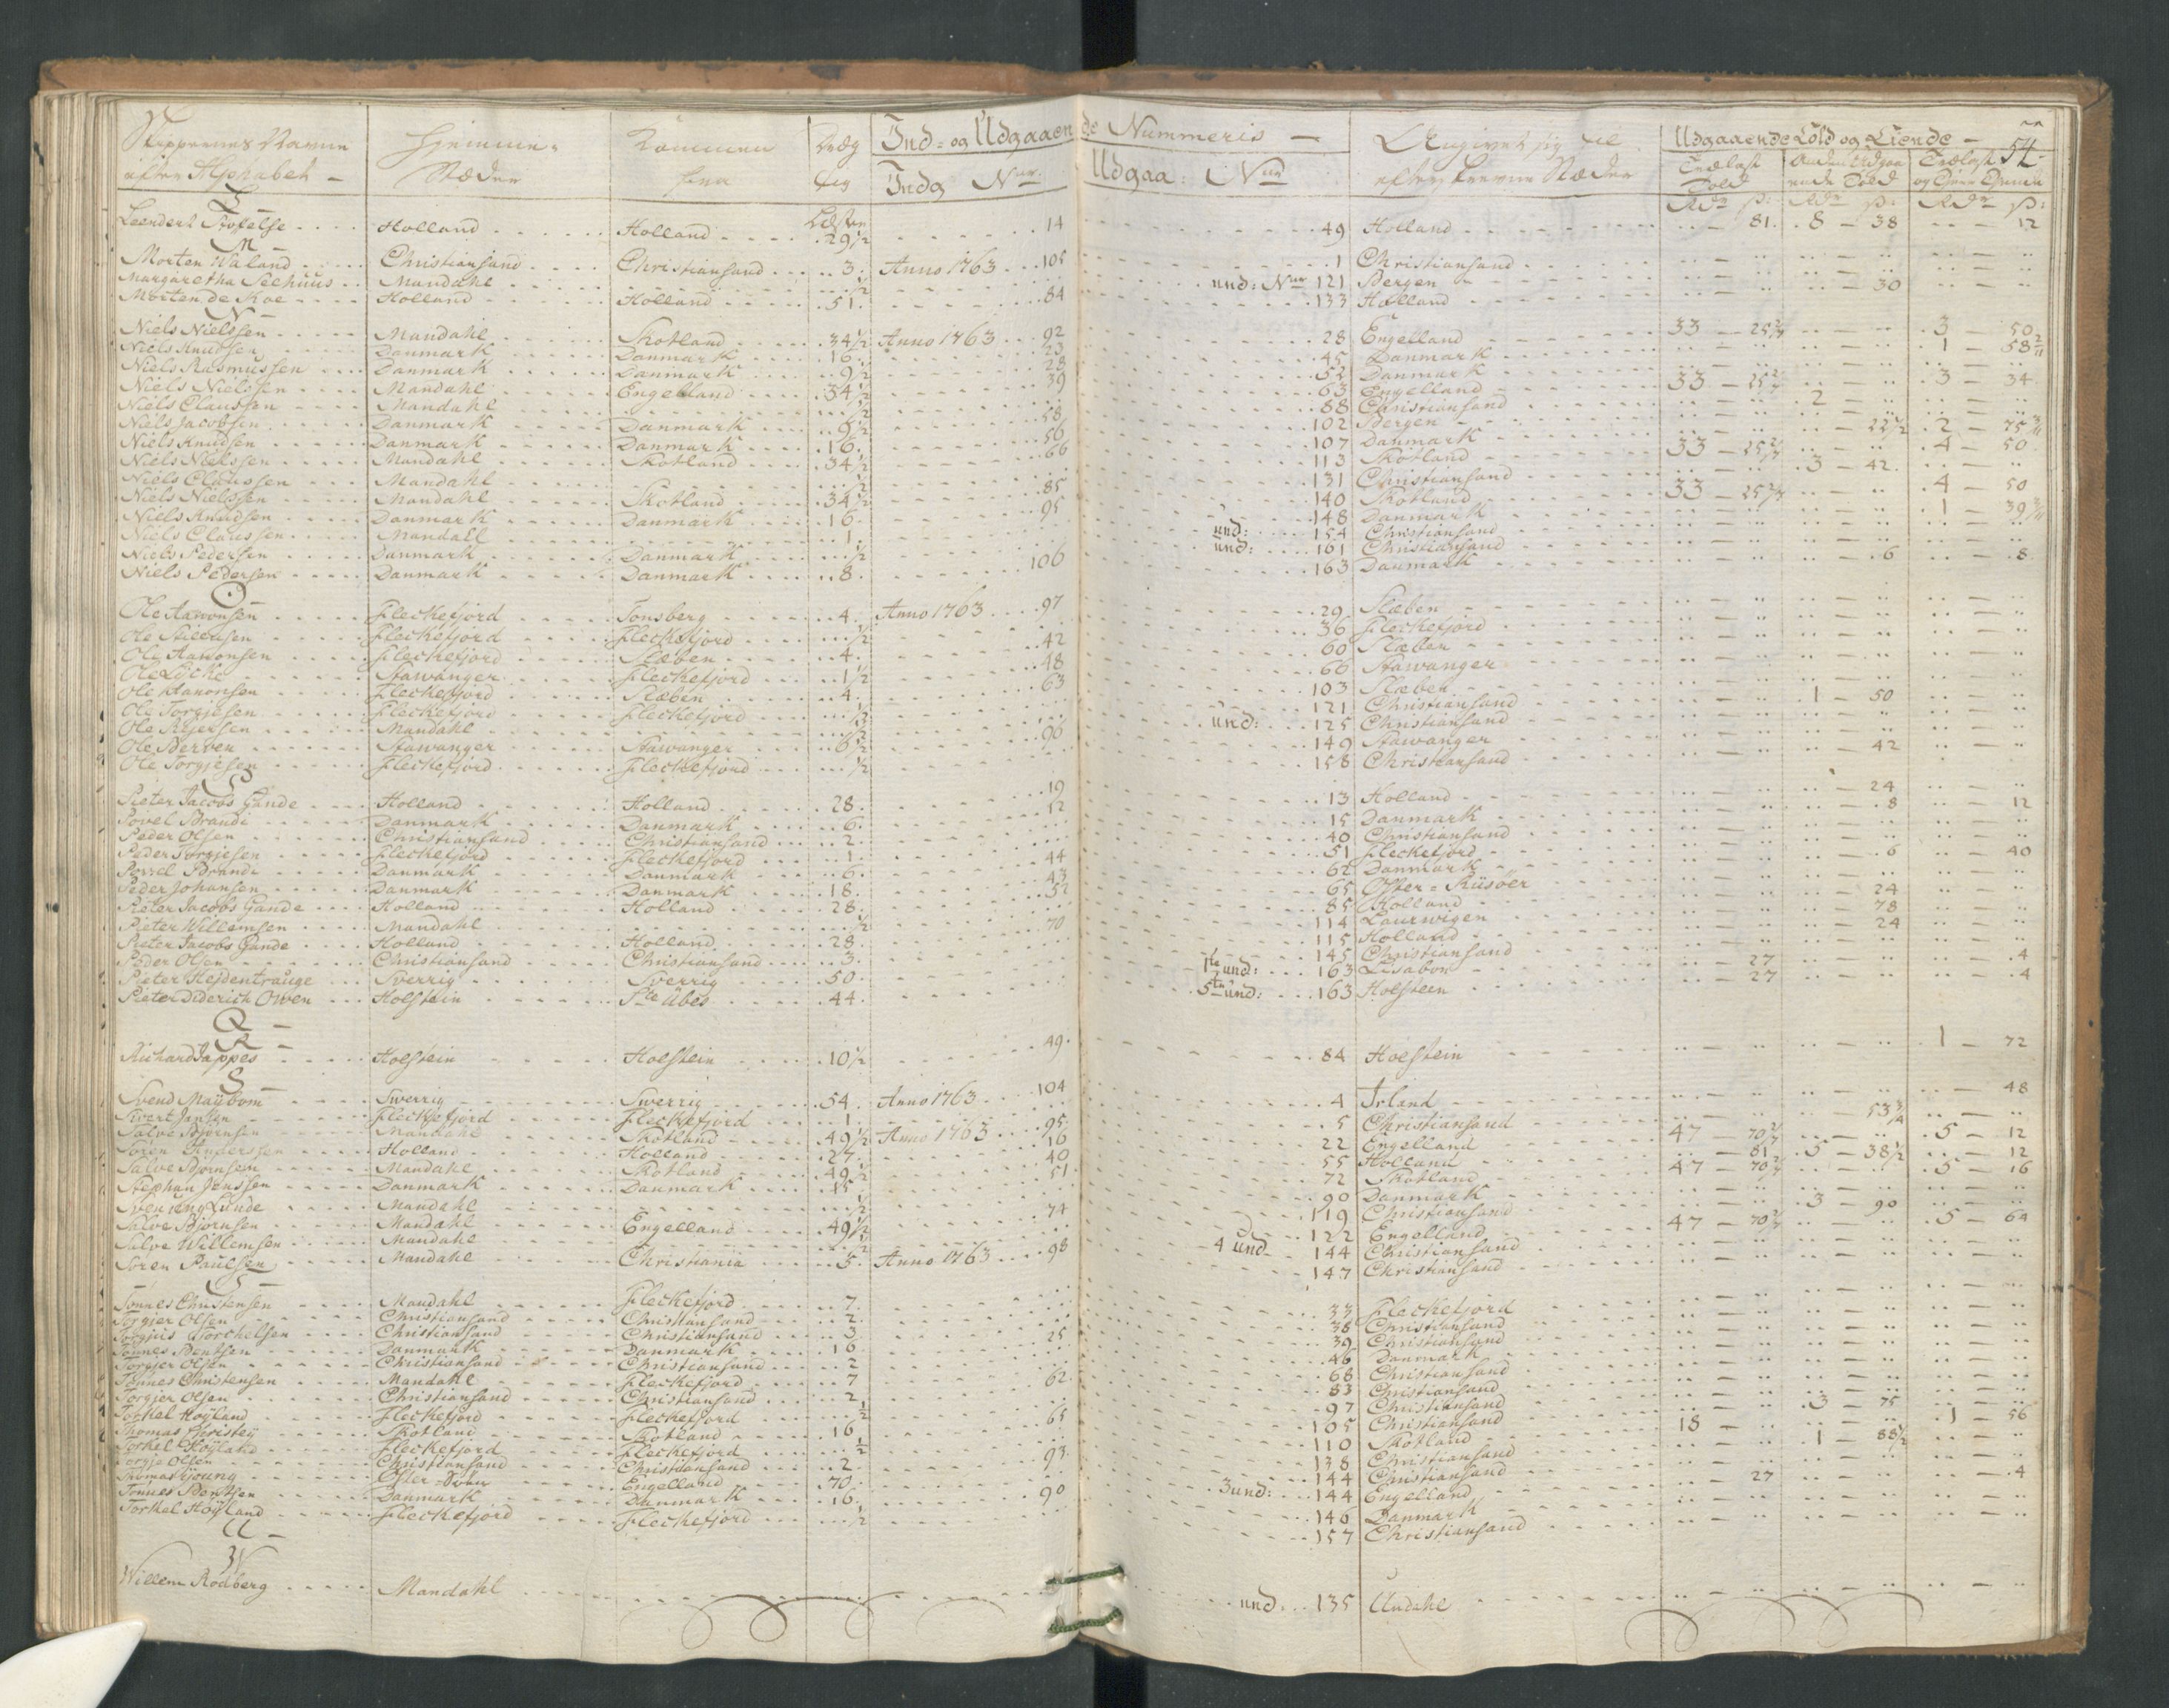 Skippernes Navne efter Alphabet – | Hjemme-Stæder | Kommen fra | Dræg tig | Ind- og Udgaaende Nummeris – | Angivet sig til efterskrevne Stæder | Udgaaende Told og Tiende – 54.
Indg Nr. | Udgaa: Nr | Trælast Told | Anden Udgaaende Told | Trælast og Tiende
Læster | Rdr ß: | Rdr ß: | Rdr ß:
L
Leendert Stofelse | Holland | Holland | 29½ | 14 | 49 | Holland | 81. | 8 – 38 | 12
M
Morten Waland | Christiansand | Christiansand | 3. | Anno 1763 105 | 1 | Christiansand
Margaretha Seehuus | Mandahl | ½ | und: Nr 121 | Bergen | 30
Morten de Koe | Holland | Holland | 51. | 84 | 133 | Holland
N
Niels Nielssen | Mandahl | Skotland | 34½ | Anno 1763 92 | 28 | Engelland | 33 – 25 2/7 | 3 – 50
Niels Knudsen | Danmark | Danmark | 16. | 23 | 45 | Danmark | 1 – 58 2/11
Niels Rasmussen | Danmark | Danmark | 9½ | 28 | 52 | Danmark
Niels Nielssen | Mandahl | Engelland | 34½ | 39 | 63 | Engelland | 33 – 25 2/7 | 3 – 34
Niels Claussen | Mandahl | ½ | 88 | Christiansand | 2
Niels Jacobsen | Danmark | Danmark | 9½ | 58 | 102 | Bergen | 22½ | 2 – 75 3/11
Niels Knudsen | Danmark | Danmark | 16. | 56 | 107 | Danmark | 4 – 50
Niels Nielssen | Mandahl | Skotland | 34½ | 66 | 113 | Skotland | 33 – 25 2/7
Niels Claussen | Mandahl | ½ | 131 | Christiansand | 3 – 42.
Niels Nielssen | Mandahl | Skotland | 34½ | 85 | 140 | Skotland | 33 – 25 2/7 | 4 – 50
Niels Knudsen | Danmark | Danmark | 16. | 95 | 148 | Danmark | 1 – 39 3/11
Niels Claussen | Mandall | 1. | und: 154 | Christiansand
Niels Pedersen | Danmark | Danmark | ½ | und: 161 | Christiansand
Niels Pedersen | Danmark | Danmark | 8. | 106 | 163 | Danmark | 6 | 8
O
Ole Aanonsen | Fleckefjord | Tonsberg | 4. | Anno 1763 97 | 29 | Slæben
Ole | Fleckefjord | Fleckefjord | ½ | 36 | Fleckefjord
Ole Aanonsen | Fleckefjord | Slæben | 4. | 42 | 60 | Slæben
Ole Lycke | Stawanger | Fleckefjord | 1½ | 48 | 66 | Stawanger
Ole Aanonsen | Fleckefjord | Slæben | 4. | 63 | 103 | Slæben
Ole Torgjesen | Fleckefjord | Fleckefjord | ½ | 121 | Christiansand | 1 – 50
Ole Rejersen | Mandahl | ½ | und: 125 | Christiansand
Ole Berven | Stawanger | Stawanger | 6½ | 96 | 149 | Stawanger
Ole Torgjesen | Fleckefjord | Fleckefjord | ½ | 158 | Christiansand | 42
P
Pieter Jacobs Gande | Holland | Holland | 28. | 19 | 13 | Holland | 24
Povel Brandi | Danmark | Danmark | 6. | 12 | 15 | Danmark | 8 | 12
Peder Olsen | Christiansand | Christiansand | 2. | 40 | Christiansand
Peder Torgjesen | Fleckefjord | Fleckefjord | 1. | 51 | Fleckefjord
Povel Brandi | Danmark | Danmark | 6. | 44 | 62 | Danmark | 6 | 40
Peder Johansen | Danmark | Danmark | 18. | 43 | 65 | Øster-Riisöer
Pieter Jacobs Gande | Holland | Holland | 28. | 52 | 85 | Holland | 24
Pieter Willemsen | Mandahl | ½ | 114 | Laurwigen | 78
Pieter Jacobs Gande | Holland | Holland | 28. | 70 | 115 | Holland | 24
Peder Olsen | Christiansand | Christiansand | 3. | 145 | Christiansand
Pieter Hejdentrauge | Sverrig | Sverrig | 50. | 1te und: 163 | Lisabon | 27 | 4
Pieter Diderich Owen | Holstein | Ste Ubes | 44. | 5te und: 163 | Holsteen | 27 | 4
Q –
R –
Richard Jappes | Holstein | Holstein | 10½ | 49. | 84 | Holstein | 1 – 72
S –
Svend Maybom | Swerrig | Swerrig | 54. | Anno 1763 104 | 4 | Irland | 48
Sivert Jansen | Fleckefjord | Fleckefjord | 1. | 5 | Christiansand | 53¾
Salve Bjørnsen | Mandahl | Skotland | 49½ | Anno 1763 95. | 22 | Engelland | 47 – 70 2/7 | 5 – 12
Søren Anderssen | Holland | Holland | 27. | 16 | 55 | Holland | 81 | 5 – 38½ | 12
Salve Bjørnsen | Mandahl | Skotland | 49½ | 40 | 72 | Skotland | 47 – 70 2/7 | 5 – 16
Stephan Jenssen | Danmark | Danmark | 15. | 51 | 90 | Danmark
Svenning Lunde | Mandahl | ½ | 119 | Christiansand | 3 – 90
Salve Bjørnsen | Mandahl | Engelland | 49½ | 74 | 122 | Engelland | 47 – 70 2/7 | 5 – 64
Salve Willemsen | Mandahl | ½ | 4 und 144 | Christiansand
Søren Paulsen | Mandahl | Christiania | 5. | Anno 1763 98 | 147 | Christiansand
T
Tönnes Christensen | Mandahl | Fleckefjord | 7. | 33 | Fleckefjord
Torgier Olsen | Christiansand | Christiansand | 2. | 38 | Christiansand
Torgjuis Torchelsen | Christiansand | Christiansand | 3. | 39 | Christiansand
Tönnes Bentsen | Danmark | Danmark | 16 | 25 | 46 | Danmark
Torgjer Olsen | Christiansand | Christiansand | 2 | 68 | Christiansand
Tönnes Christensen | Mandahl | Fleckefjord | 7 | 62 | 83 | Christiansand
Torgjer Olsen | Christiansand | Christiansand | 2. | 97 | Christiansand
Torkel Höyland | Fleckefjord | Fleckefjord | ½ | 105 | Christiansand | 3 – 75
Thomas Christey | Skotland | Skotland | 16. | 65 | 110 | Skotland | 18 | 1 – 56
Torkel Höyland | Fleckefjord | Fleckefjord | ½ | 138 | Christiansand | 1 – 88½
Torgje Olsen | Christiansand | Christiansand | 2. | 144 | Christiansand
Thomas Young | Öster- | Engelland | 70. | 93 | 3 und: 144 | Engelland | 27 | 4
Tönnes Bentsen | Danmark | Danmark | 16. | 90 | 146 | Danmark
Torkel Höyland | Fleckefjord | Fleckefjord | ½ | 157 | Christiansand
U –
W
Willem Rödberg | Mandahl | und. 135 | Undahl